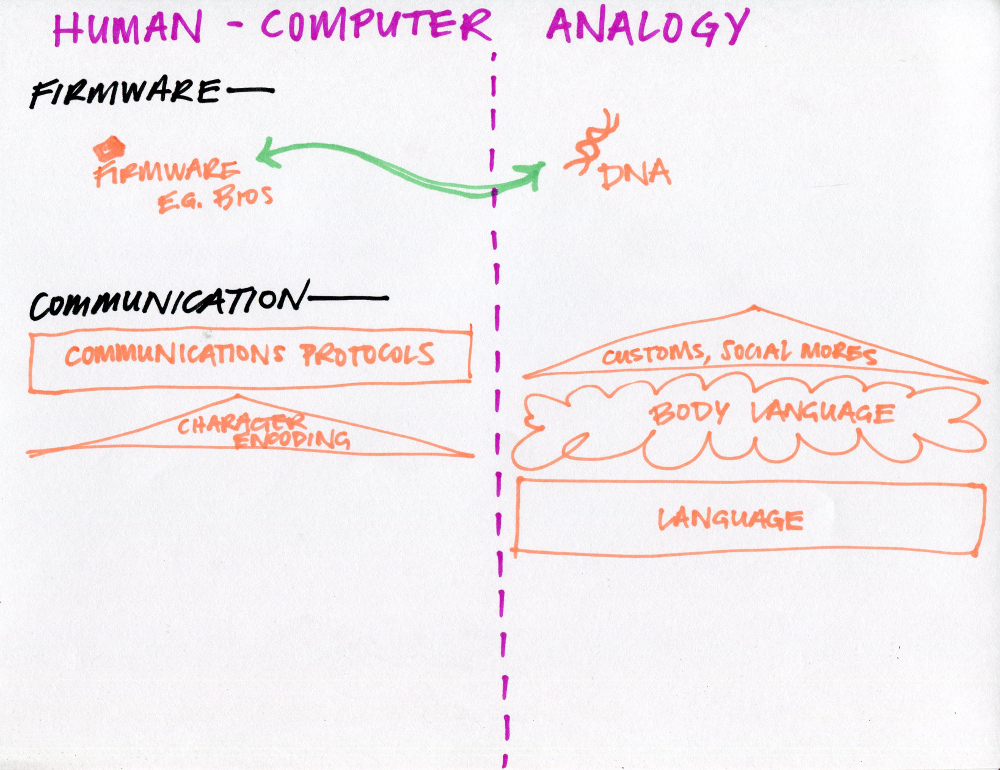 HUMAN - COMPUTER ANALOGY
FIRMWARE—
FIRMWARE
E.G. BIOS
DNA
COMMUNICATION—
COMMUNICATIONS PROTOCOLS
CHARACTER
ENCODING
CUSTOMS, SOCIAL MORES
BODY LANGUAGE
LANGUAGE